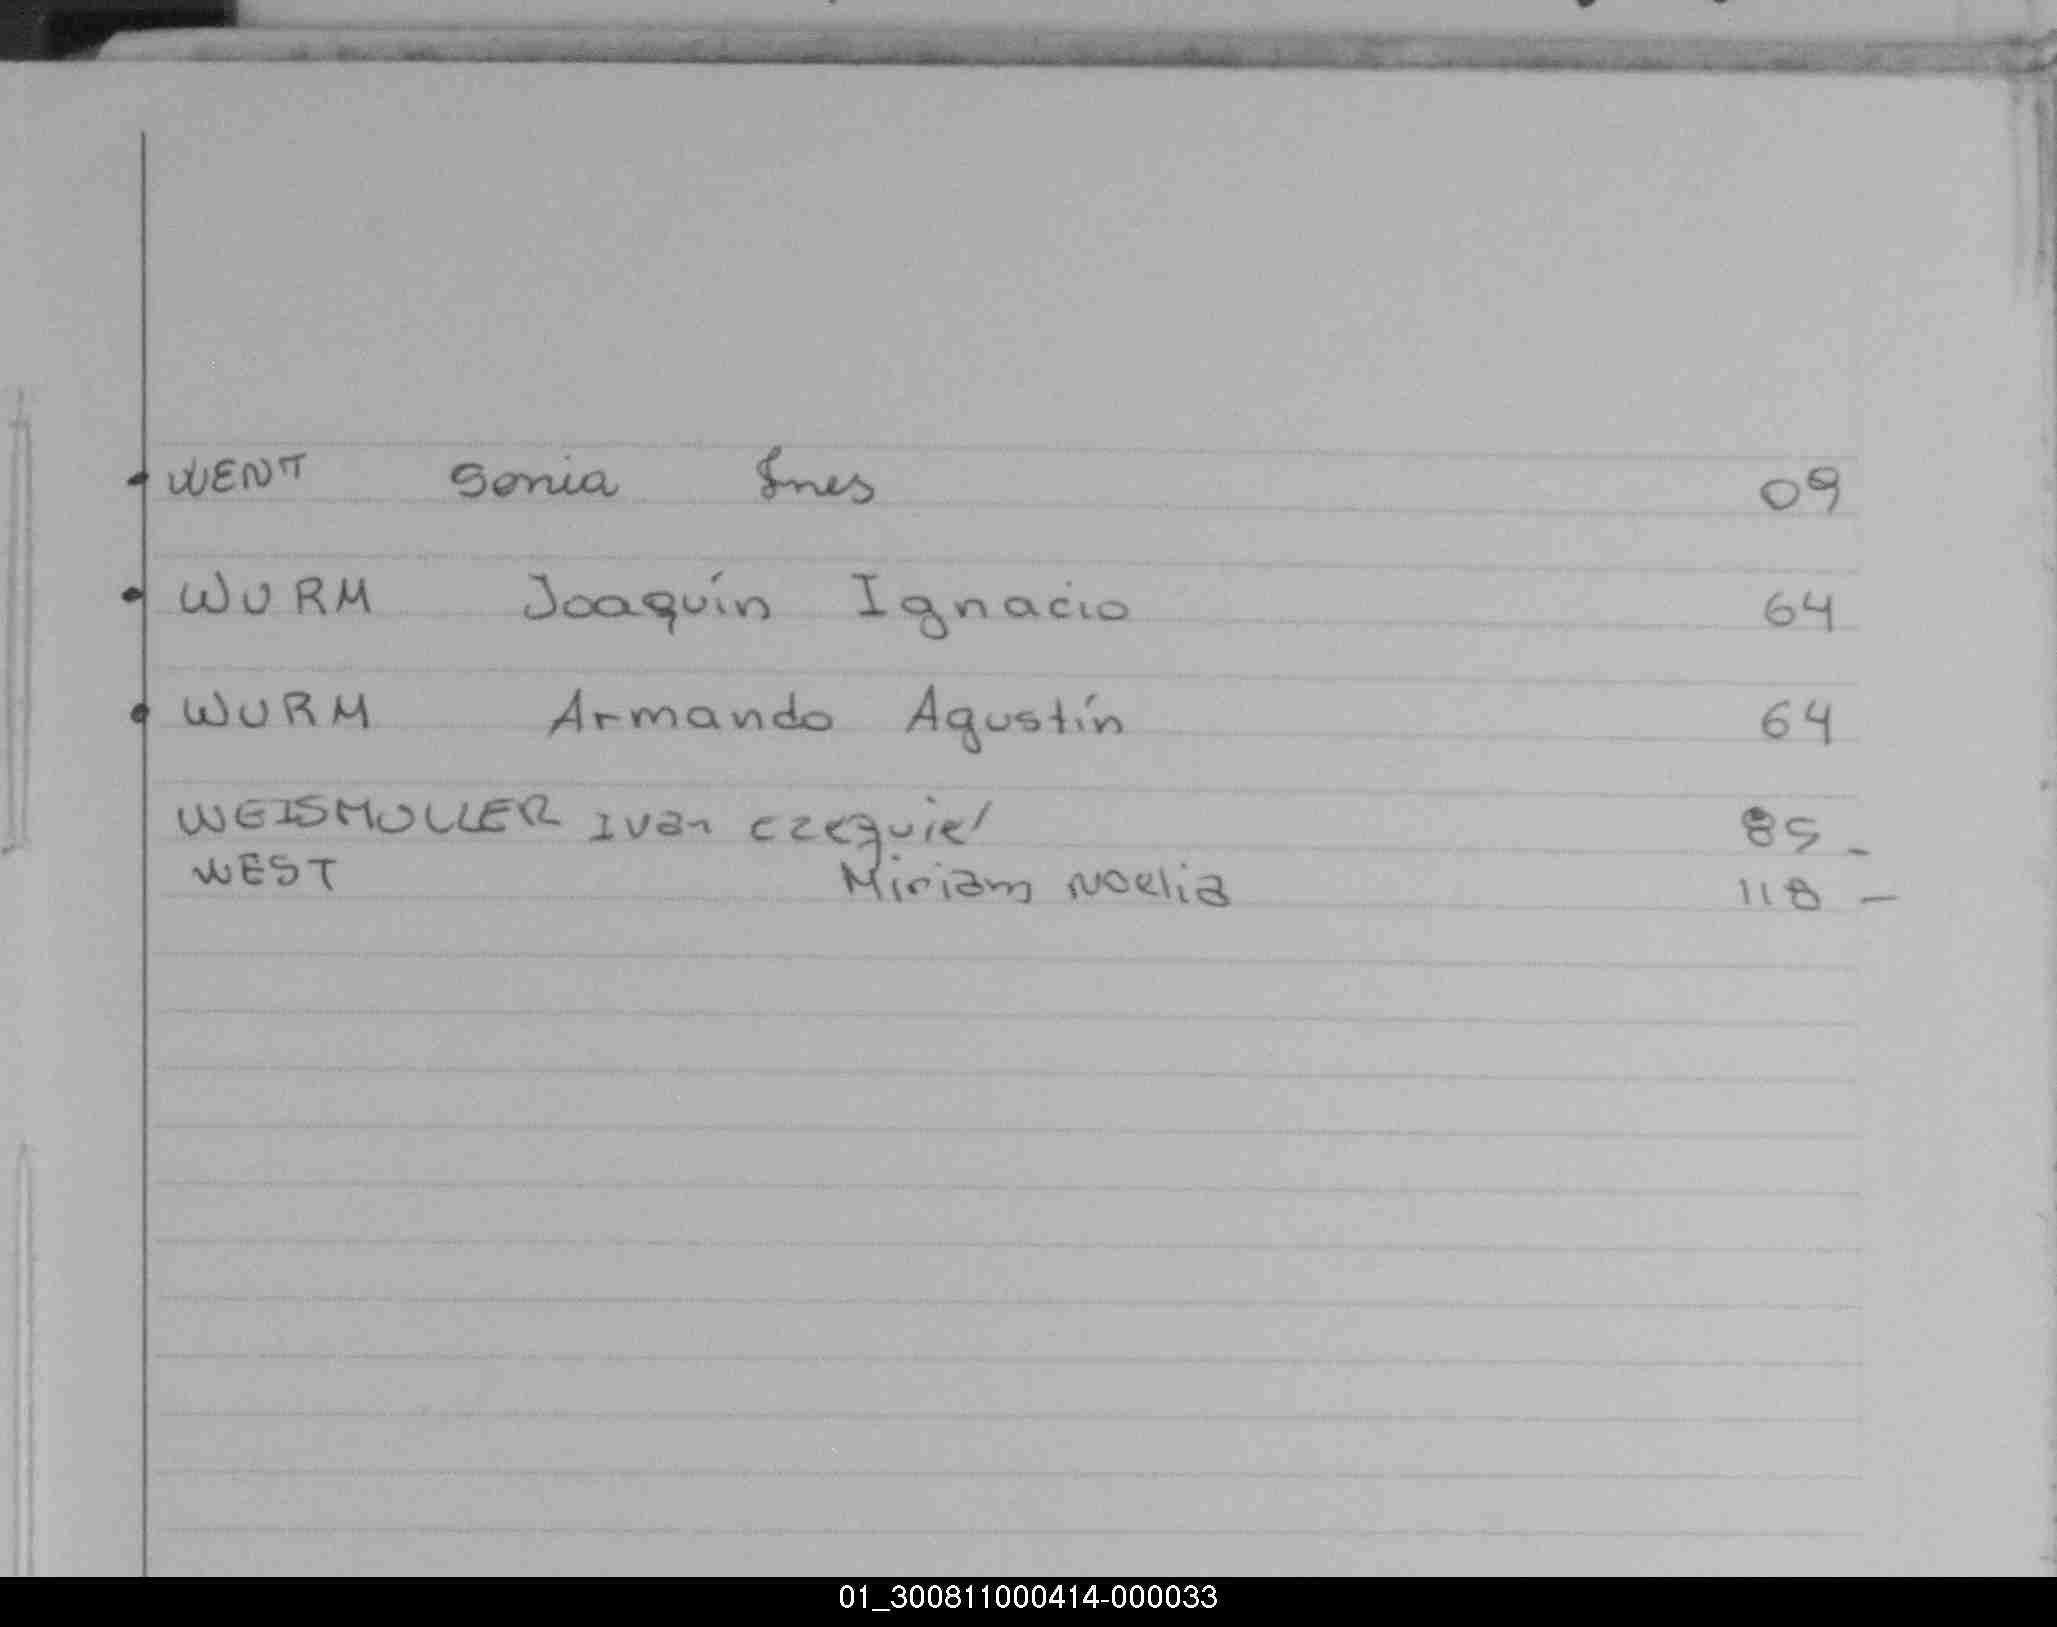 • WENT Sonia Ines 09
• WURM Joaquín Ignacio 64
• WURM Armando Agustín 64
WEISMULLER Ivan Ezequiel 85 -
WEST Miriam Noelia 118 -
01_300811000414-000033